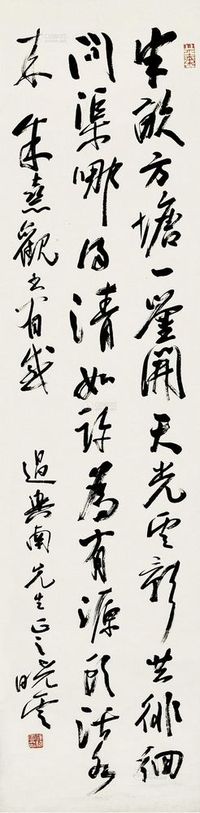 半畝方塘一鑒開天光雲影共徘徊
問渠哪得清如許為有源頭活水
來 朱熹觀書有感
南先生正之 曉雲